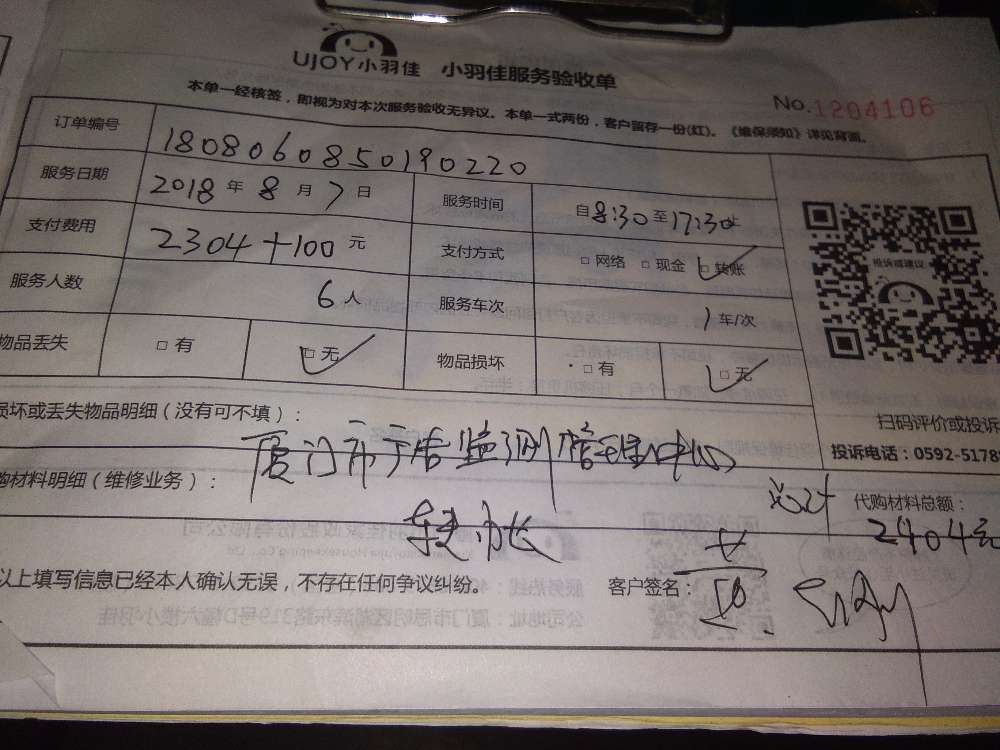 UJOY小羽佳 小羽佳服务验收单
本单一经核签，即视为对本次服务验收无异议。本单一式两份，客户留存一份(红)。《维保须知》详见背面。
No.1204106
订单编号 180806085019 0220
服务日期 2018年8月7日 服务时间 自8:30至17:30止
支付费用 2304+100元 支付方式 □网络 □现金 □转账
服务人数 6人 服务车次 1车/次
物品丢失 □有 □无 物品损坏 □有 □无
投诉或建议
扫码评价或投诉
投诉电话：0592-5178
损坏或丢失物品明细（没有可不填）：
厦门市 监测管理中心
购材料明细（维修业务）：
总计 代购材料总额：
2404元
以上填写信息已经本人确认无误，不存在任何争议纠纷。
客户签名：